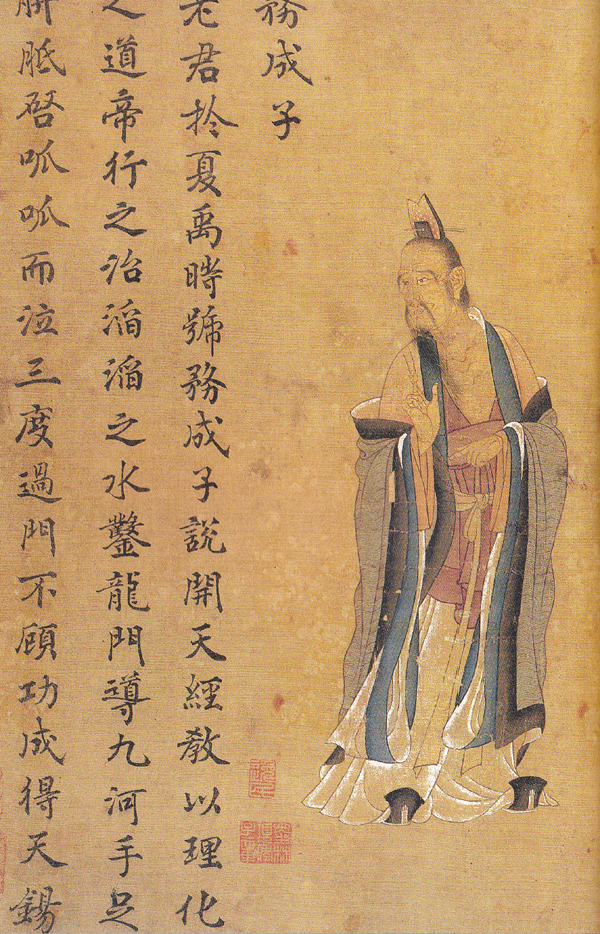 務成子
老君扵夏禹時號務成子說開天經教以理化
之道帝行之治滔滔之水鑿龍門導九河手足
胼胝啓呱呱而泣三度過門不顧功成得天錫